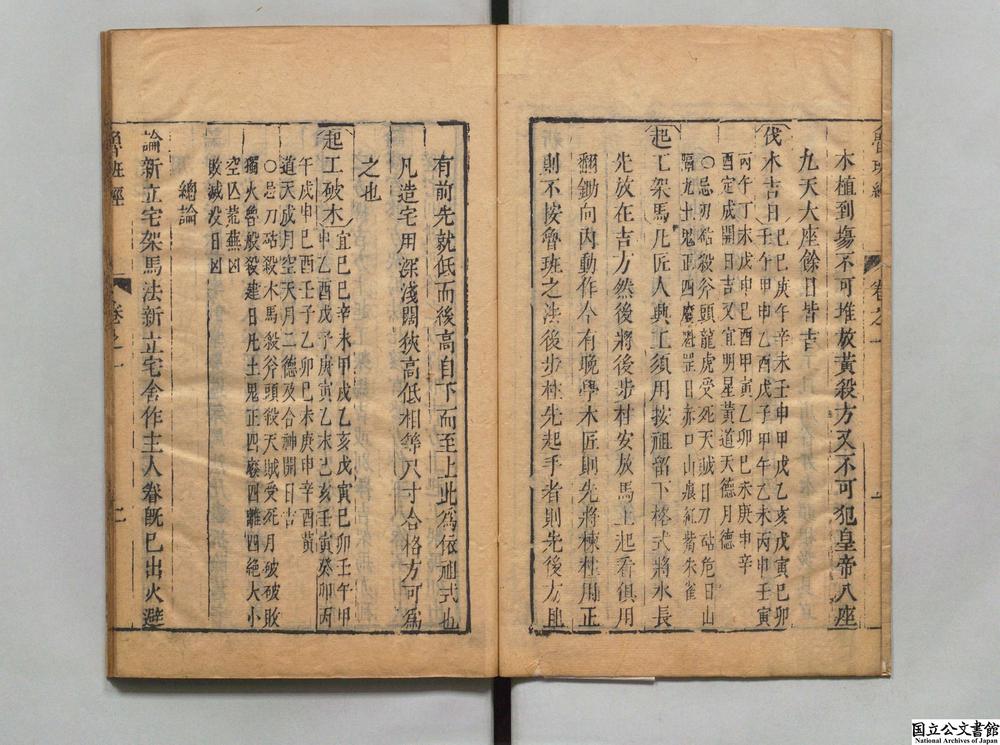 魯班經
卷之一
木植到塲不可堆放黃殺方又不可犯皇帝八座
九天大座餘日皆吉
伐木吉日己巳庚午辛未壬申甲戌乙亥戊寅己卯
壬午甲申乙酉戊子甲午乙未丙申壬寅
丙午丁未戊申己酉甲寅乙卯己未庚申辛
酉定成開日吉又宜明星黃道天德月德
○忌刃砧殺斧頭龍虎受死天賊日刀砧危日山
隔九土鬼正四廢魁罡日赤口山痕紅觜朱雀
起工架馬凡匠人興工須用按祖留下格式將水長
先放在吉方然後將後步柱安放馬上起看俱用
翻鋤向內動作今有晚學木匠則先將棟柱用正
則不按魯班之法後步柱先起手者則先後方且
有前先就低而後高自下而至上此為依祖式也
凡造宅用深淺闊狹高低相等尺寸合格方可為
之也
起工破木宜己巳辛未甲戌乙亥戊寅己卯壬午甲
申乙酉戊子庚寅乙未己亥壬寅癸卯丙
午戊申己酉壬子乙卯己未庚申辛酉黃
道天成月空天月二德及合神開日吉
○忌刀砧殺木馬殺斧頭殺天賊受死月破破敗
獨火魯般殺建日凡土鬼正四廢四離四絕大小
空亡荒蕪凶
敗滅没日凶
總論
論新立宅架馬法新立宅舍作主人眷既已出火避
魯班經
卷之一
二
国立公文書館
National Archives of Japan